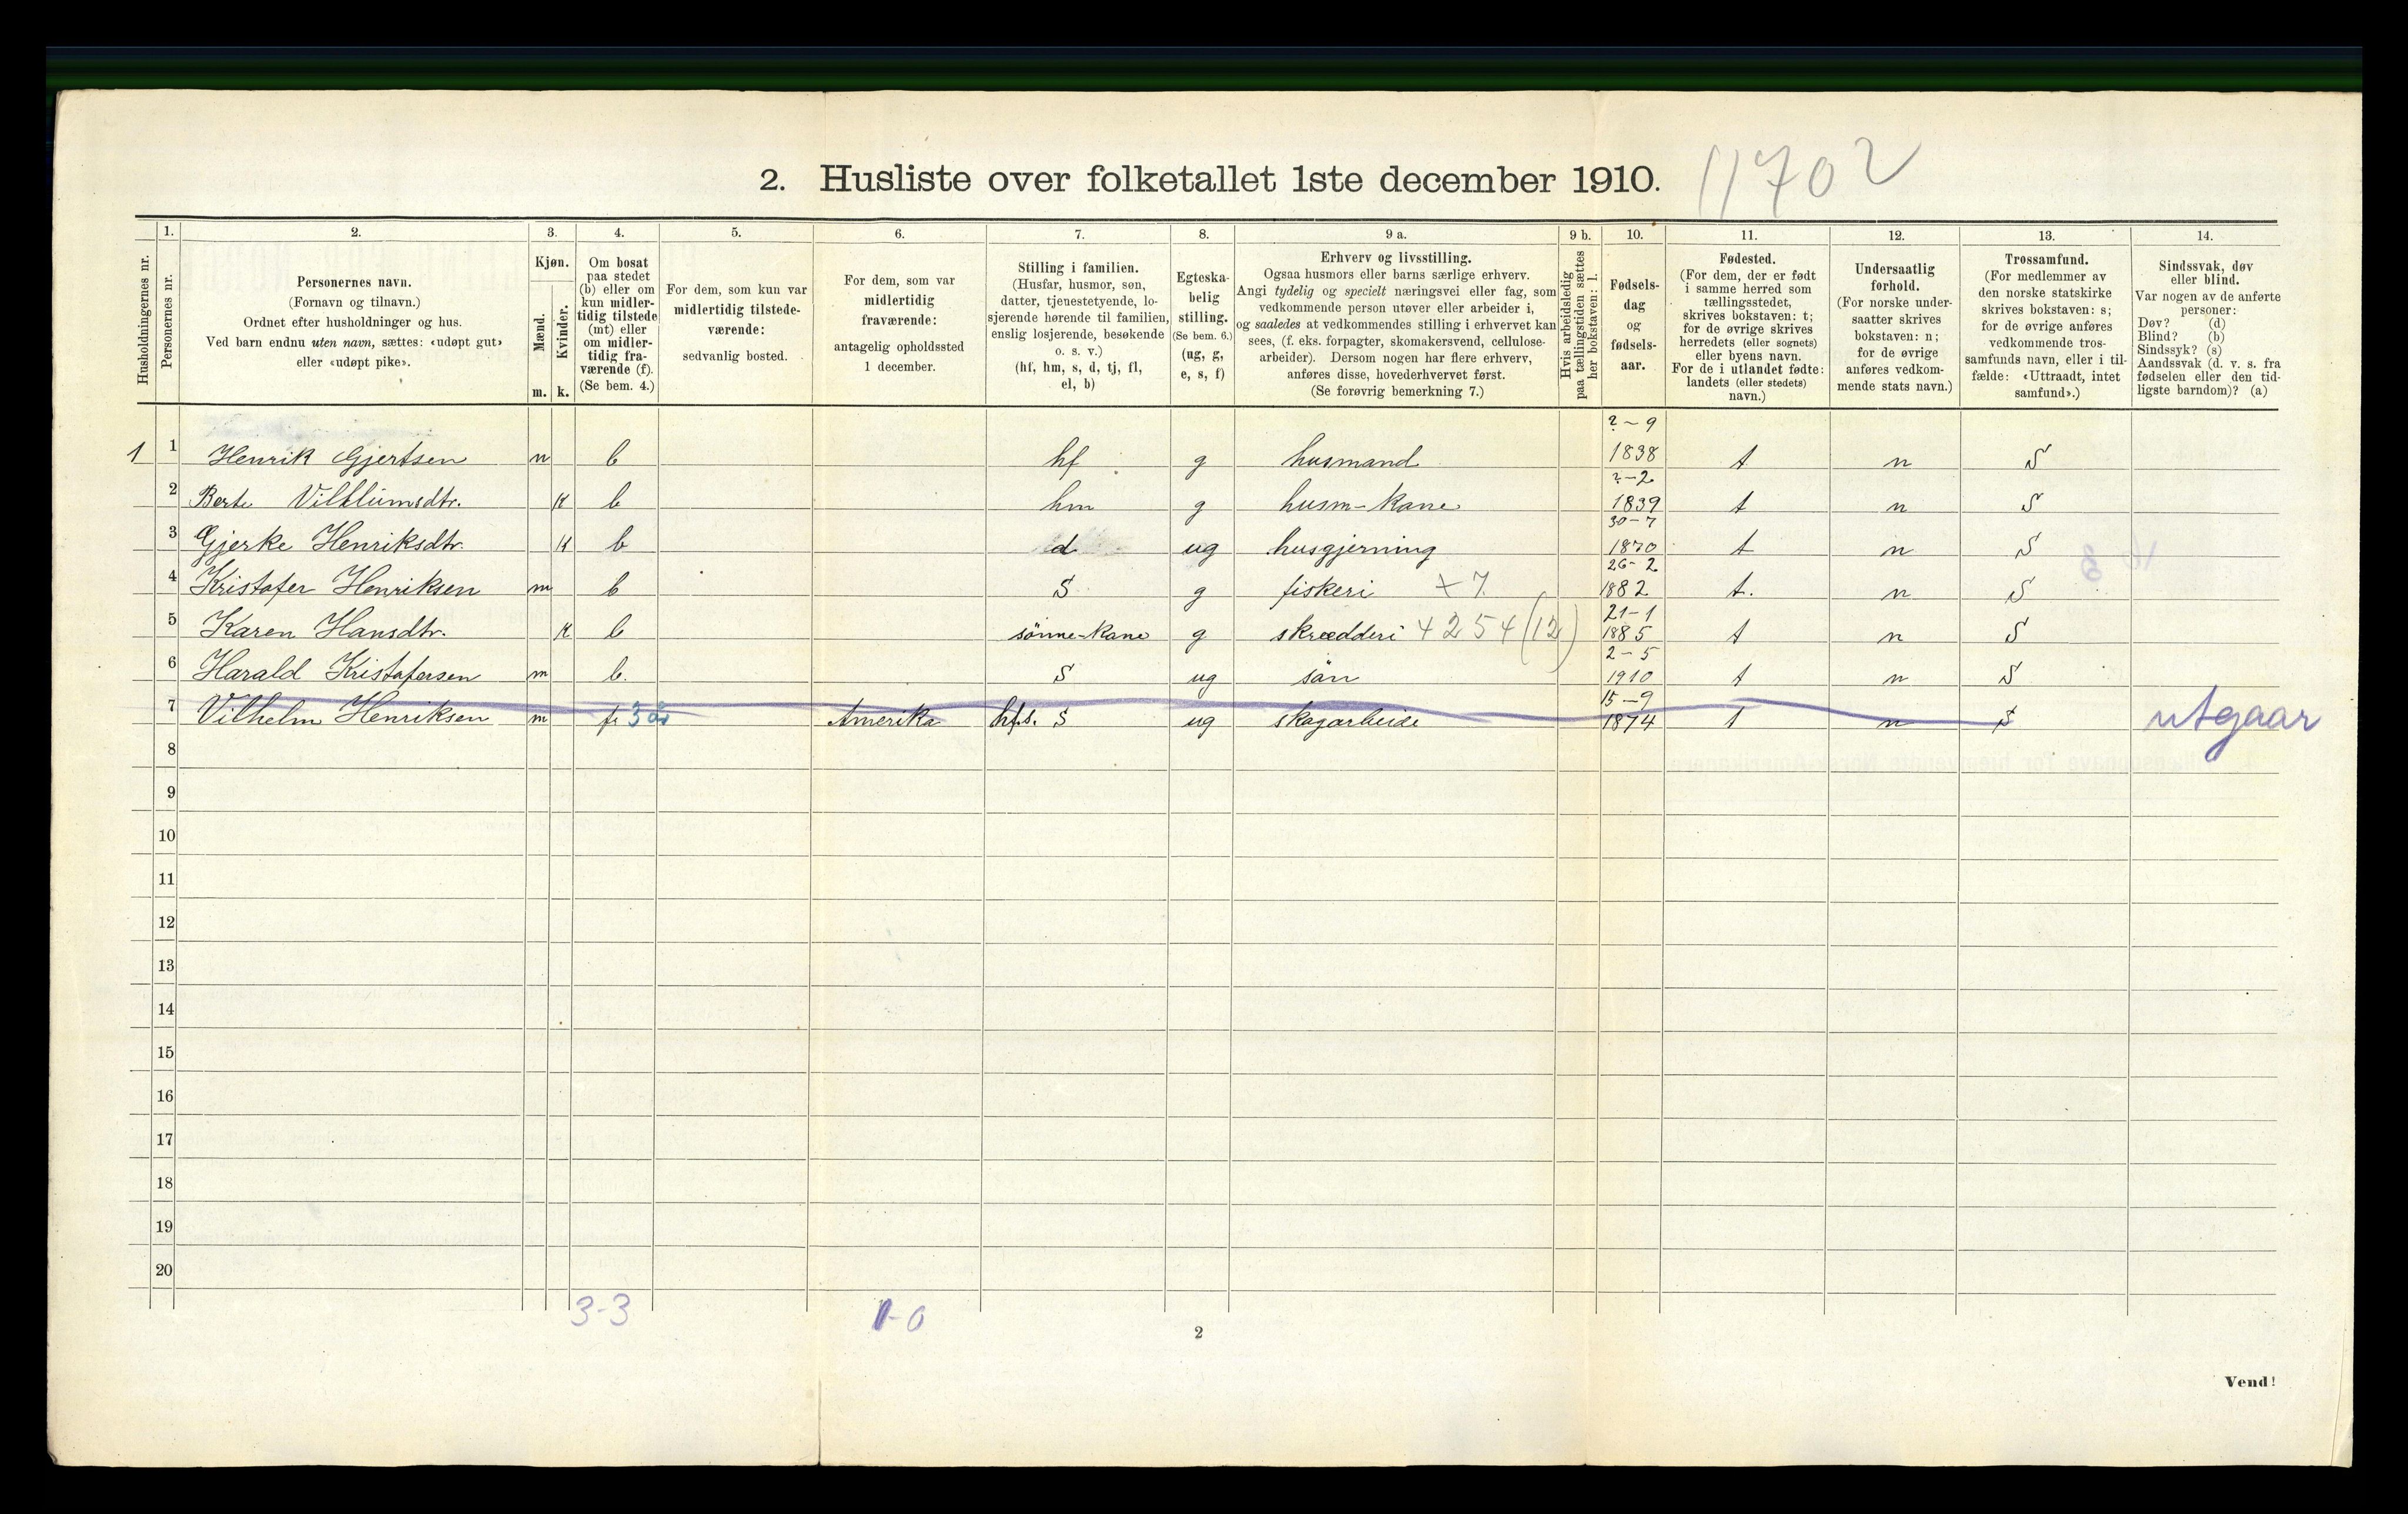 2. Husliste over folketallet 1ste december 1910. 11702
Husholdningernes nr.
1.
Personernes nr.
2.
Personernes navn.
(Fornavn og tilnavn.)
Ordnet efter husholdninger og hus.
Ved barn endnu uten navn, sættes: «udøpt gut»
eller «udøpt pike».
3.
Kjøn.
Mænd.
Kvinder.
m. k.
4.
Om bosat
paa stedet
(b) eller om
kun midler-
tidig tilstede
(mt) eller
om midler-
tidig fra-
værende (f).
(Se bem. 4.)
5.
For dem, som kun var
midlertidig tilstede-
værende:
sedvanlig bosted.
6.
For dem, som var
midlertidig
fraværende:
antagelig opholdssted
1 december.
7.
Stilling i familien.
(Husfar, husmor, søn,
datter, tjenestetyende, lo-
sjerende hørende til familien,
enslig losjerende, besøkende
o. s. v.)
(hf, hm, s, d, tj, fl,
el, b)
8.
Egteska-
belig
stilling.
(Se bem. 6.)
(ug, g,
e, s, f)
9 a.
Erhverv og livsstilling.
Ogsaa husmors eller barns særlige erhverv.
Angi tydelig og specielt næringsvei eller fag, som
vedkommende person utøver eller arbeider i,
og saaledes at vedkommendes stilling i erhvervet kan
sees, (f. eks. forpagter, skomakersvend, cellulose-
arbeider). Dersom nogen har flere erhverv,
anføres disse, hovederhvervet først.
(Se forøvrig bemerkning 7.)
9 b.
Hvis arbeidsledig
paa tællingstiden sættes
her bokstaven: l.
10.
Fødsels-
dag
og
fødsels-
aar.
11.
Fødested.
(For dem, der er født
i samme herred som
tællingsstedet,
skrives bokstaven: t;
for de øvrige skrives
herredets (eller sognets)
eller byens navn.
For de i utlandet fødte:
landets (eller stedets)
navn.)
12.
Undersaatlig
forhold.
(For norske under-
saatter skrives
bokstaven: n;
for de øvrige
anføres vedkom-
mende stats navn.)
13.
Trossamfund.
(For medlemmer av
den norske statskirke
skrives bokstaven: s;
for de øvrige anføres
vedkommende tros-
samfunds navn, eller i til-
fælde: «Uttraadt, intet
samfund».)
14.
Sindssvak, døv
eller blind.
Var nogen av de anførte
personer:
Døv? (d)
Blind? (b)
Sindssyk? (s)
Aandssvak (d. v. s. fra
fødselen eller den tid-
ligste barndom)? (a)
1 1 Henrik Gjertsen m b hf g husmand ?-9 1838 t n S
2 Berte k b hm g husm-kone ?-2 1839 t n S
3 Gjerke Henriksdtr. k b d ug husgjerning 30-7 1870 t n S
4 Kristofer Henriksen m b S g fiskeri + 7 26-2 1882 t. n S
5 Karen Hansdtr. k b sønne-kone g skrædderi 4254 (12) 21-1 1885 t n S
6 Harald Kristofersen m b. S ug søn 2-5 1910 t n S
7 Vilhelm Henriksen m f. 3 år Amerika hf.s. S ug skogarbeide 15-9 1874 t n S utgaar
8
9
10
11
12
13
14
15
16
17
18
19
20
3-3 1-0
2
Vend!